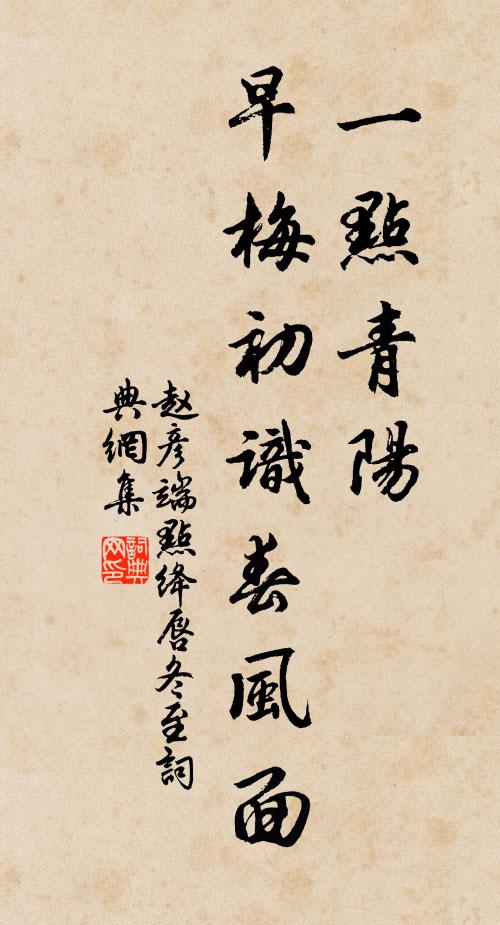 一點青陽
早梅初識春風面
赵彦端點绛唇冬至詞
典網集
詞典網印